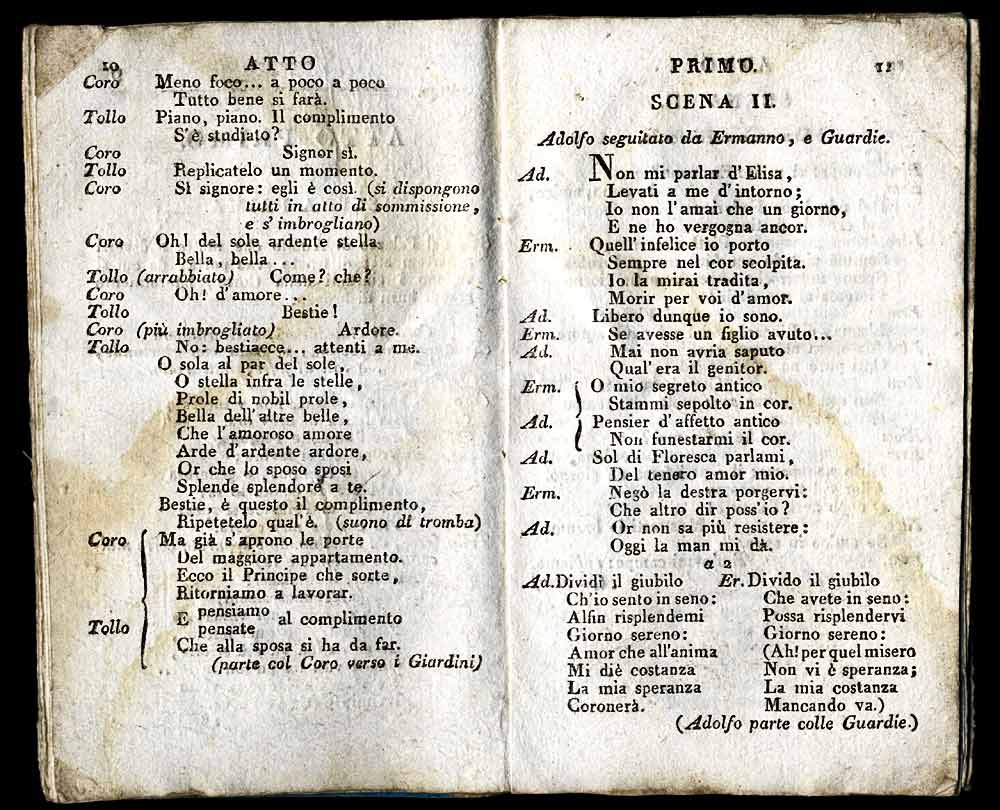 10 ATTO
Coro Meno foco... a poco a poco
Tutto bene si farà.
Tollo Piano, piano. Il complimento
S'è studiato?
Coro Signor sì.
Tollo Replicatelo un momento.
Coro Sì signore: egli è così. (si dispongono
tutti in atto di sommissione,
e s'imbrogliano)
Coro Oh! del sole ardente stella
Bella, bella...
Tollo (arrabbiato) Come? che?
Coro Oh! d'amore...
Tollo Bestie!
Coro (più imbrogliato) Ardore.
Tollo No: bestiacce... attenti a me.
O sola al par del sole,
O stella infra le stelle,
Prole di nobil prole,
Bella dell'altre belle,
Che l'amoroso amore
Arde d'ardente ardore,
Or che lo sposo sposi
Splende splendore a te.
Bestie, è questo il complimento,
Ripetetelo qual'è. (suono di tromba)
Coro Ma già s'aprono le porte
Del maggiore appartamento.
Ecco il Principe che sorte,
Ritorniamo a lavorar.
Tollo E pensiamo al complimento
pensate
Che alla sposa si ha da far.
(parte col Coro verso i Giardini)
PRIMO. 11
SCENA II.
Adolfo seguitato da Ermanno, e Guardie.
Ad. Non mi parlar d'Elisa,
Levati a me d'intorno;
Io non l'amai che un giorno,
E ne ho vergogna ancor.
Erm. Quell'infelice io porto
Sempre nel cor scolpita.
Io la mirai tradita,
Morir per voi d'amor.
Ad. Libero dunque io sono.
Erm. Se avesse un figlio avuto...
Ad. Mai non avria saputo
Qual'era il genitor.
Erm. O mio segreto antico
Stammi sepolto in cor.
Ad. Pensier d'affetto antico
Non funestarmi il cor.
Ad. Sol di Floresca parlami,
Del tenero amor mio.
Erm. Negò la destra porgervi:
Che altro dir poss'io?
Ad. Or non sa più resistere:
Oggi la man mi dà.
a 2
Ad. Dividi il giubilo
Ch'io sento in seno:
Alfin risplendemi
Giorno sereno:
Amor che all'anima
Mi diè costanza
La mia speranza
Coronerà.
Er. Divido il giubilo
Che avete in seno:
Possa risplendervi
Giorno sereno:
(Ah! per quel misero
Non vi è speranza;
La mia costanza
Mancando va.)
(Adolfo parte colle Guardie.)